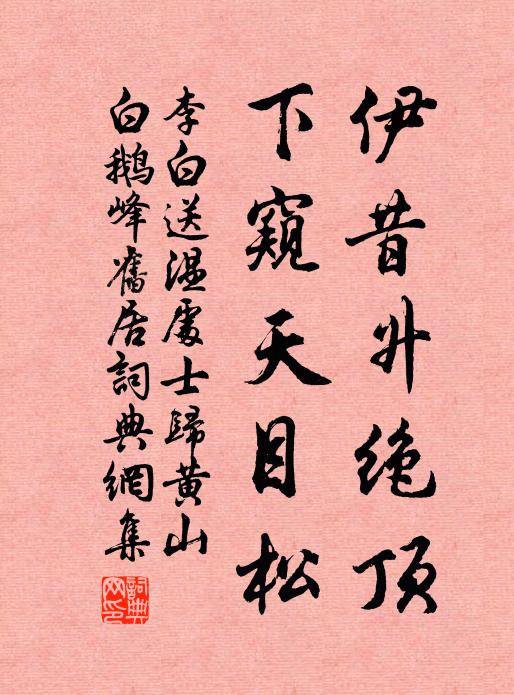 伊昔升绝顶
下窥天目松
李白送温處士歸黄山
白鹅峰舊居詞典網集
詞典网印